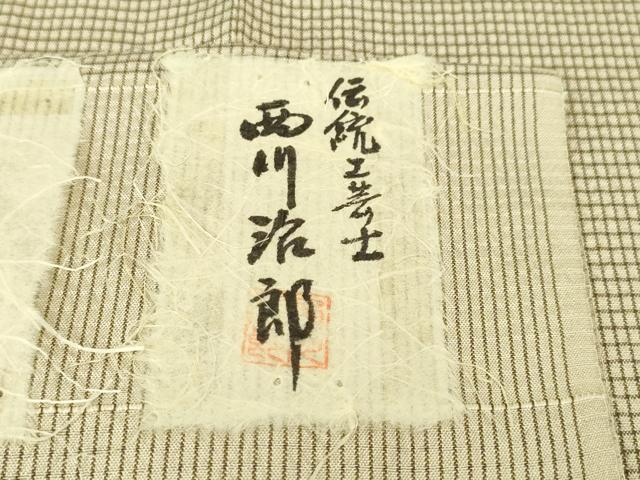 伝統工芸士
西川治郎